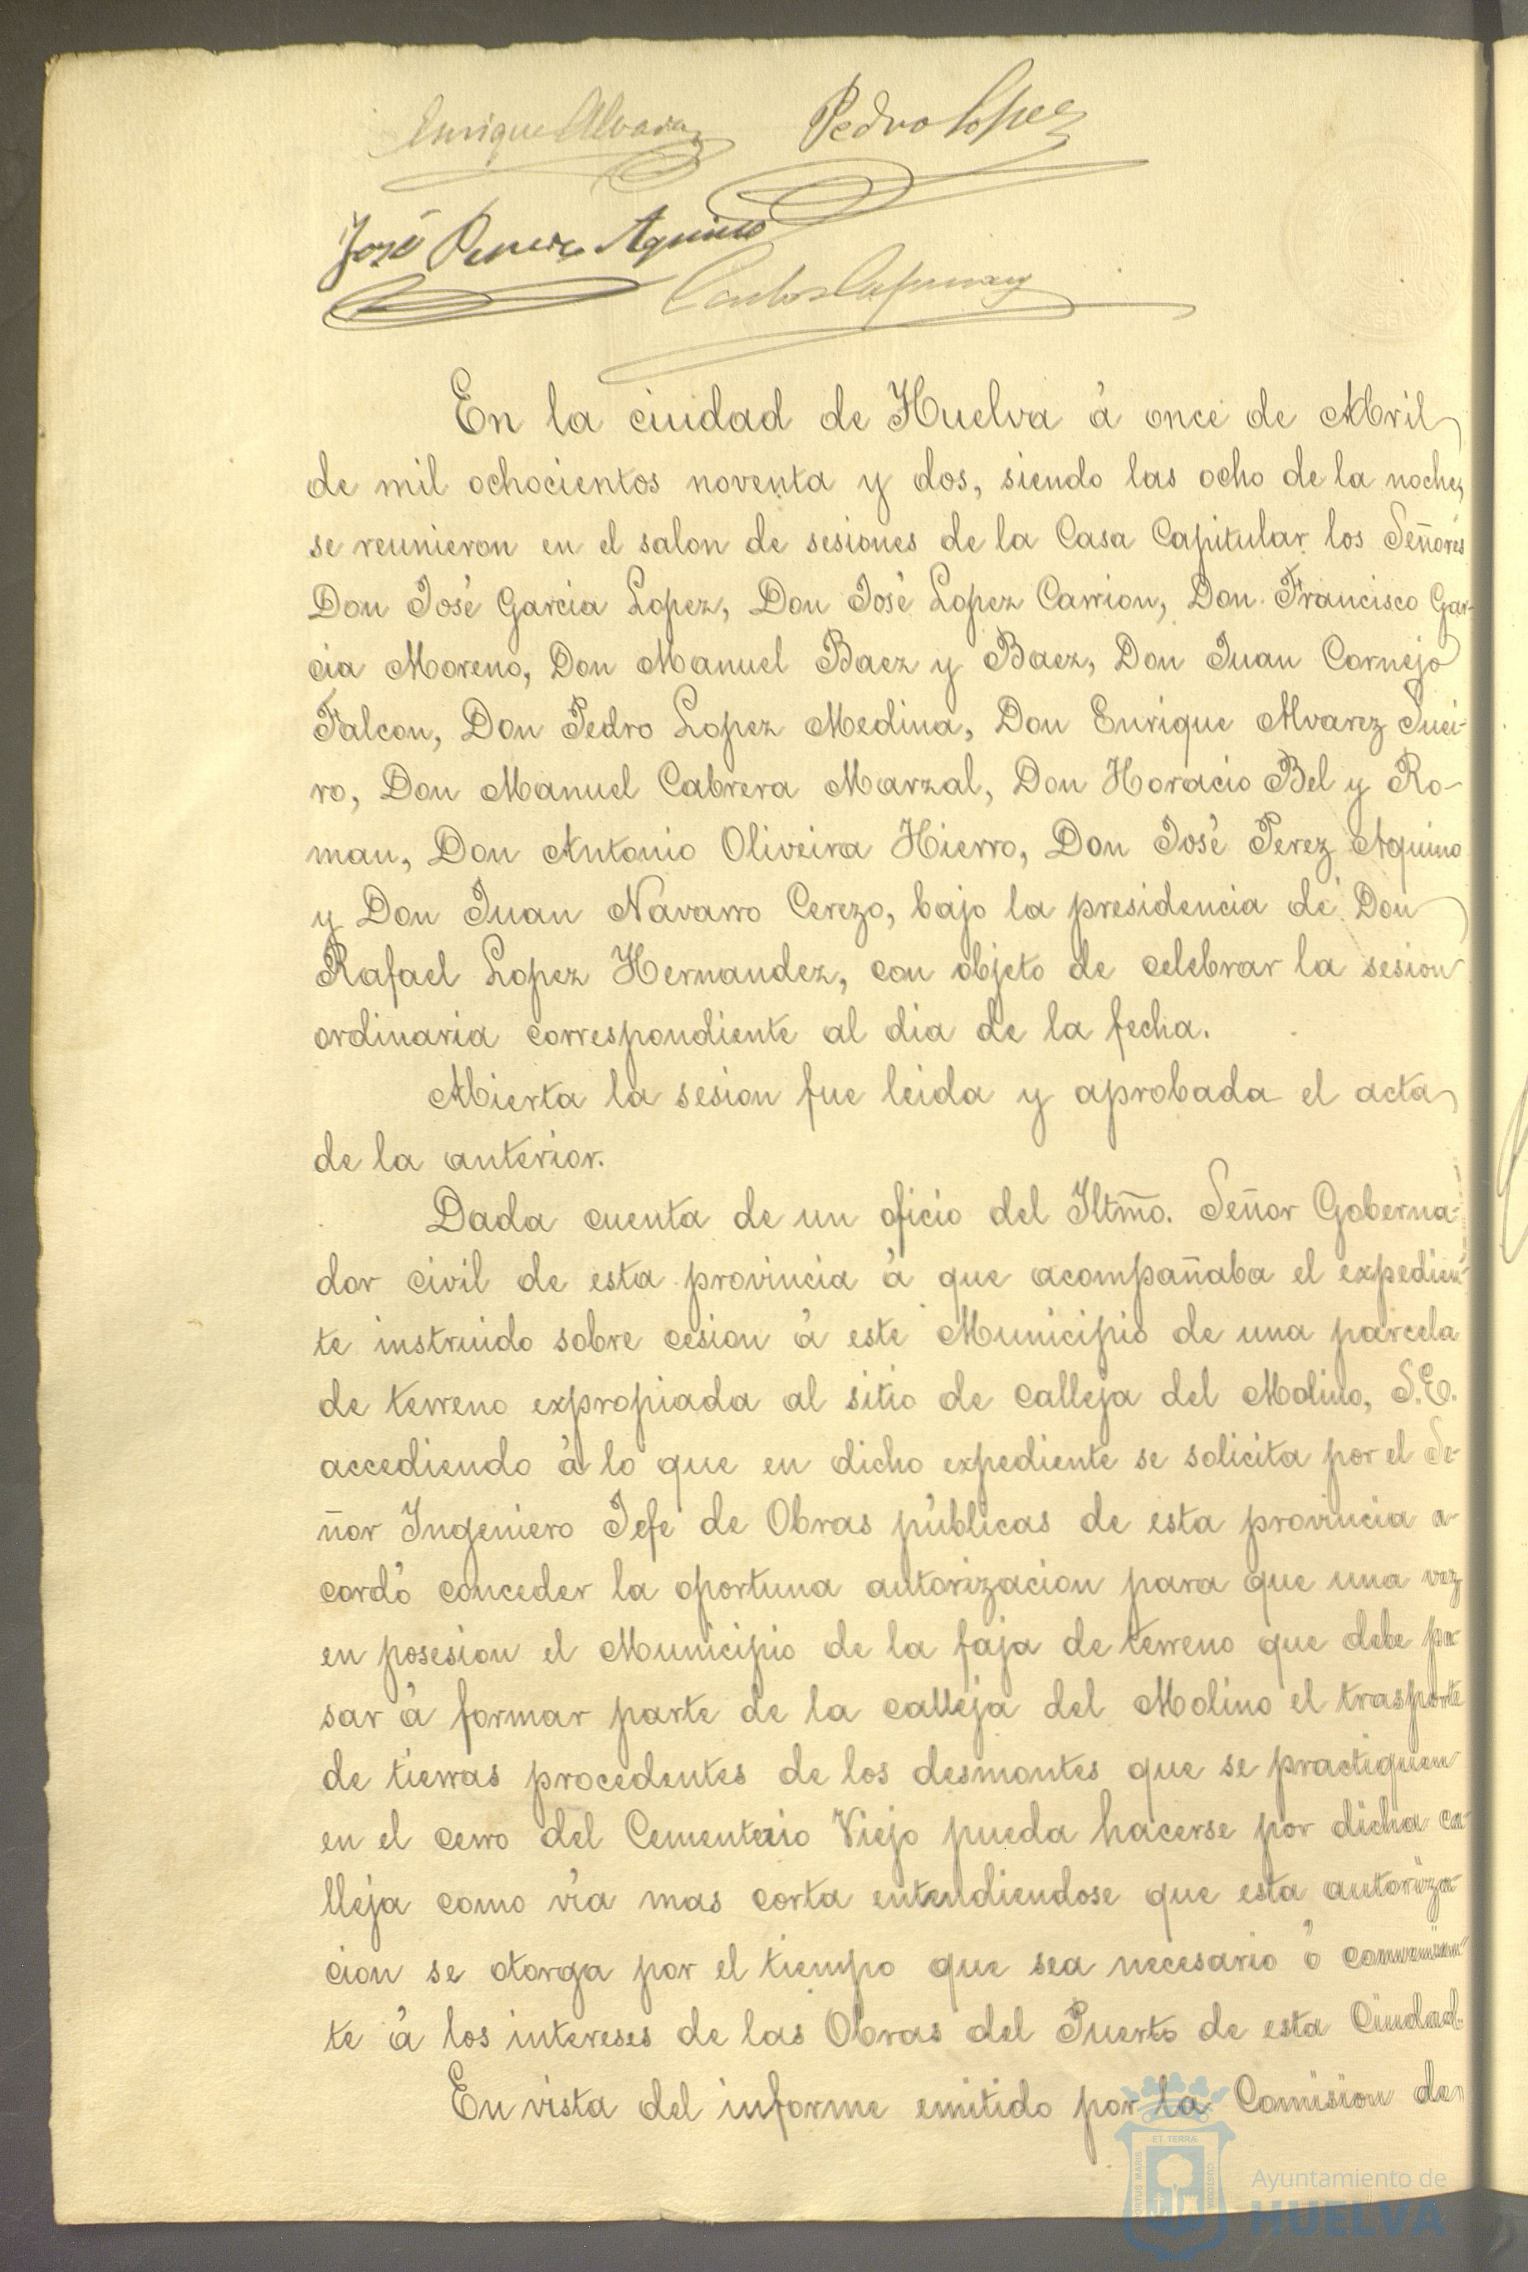 Enrique Alvarez Pedro Lopez
José Perez Aquino
Carlos
En la ciudad de Huelva á once de Abril
de mil ochocientos noventa y dos, siendo las ocho de la noche,
se reunieron en el salon de sesiones de la Casa Capitular los Señores
Don José Garcia Lopez, Don José Lopez Carrion, Don Francisco Gar-
cia Moreno, Don Manuel Baez y Baez, Don Juan Cornejo
Falcon, Don Pedro Lopez Medina, Don Enrique Alvarez Suei-
ro, Don Manuel Cabrera Marzal, Don Horacio Bel y Ro-
man, Don Antonio Oliveira Hierro, Don José Perez Aquino
y Don Juan Navarro Cerezo, bajo la presidencia de Don
Rafael Lopez Hernandez, con objeto de celebrar la sesion
ordinaria correspondiente al dia de la fecha.
Abierta la sesion fue leida y aprobada el acta
de la anterior.
Dada cuenta de un oficio del Iltmo. Señor Goberna-
dor civil de esta provincia á que acompañaba el expedien-
te instruido sobre cesion á este Municipio de una parcela
de terreno expropiada al sitio de calleja del Molino, S.E.
accediendo á lo que en dicho expediente se solicita por el Se-
ñor Ingeniero Jefe de Obras públicas de esta provincia a-
cordó conceder la oportuna autorizacion para que una vez
en posesion el Municipio de la faja de terreno que debe pa-
sar á formar parte de la calleja del Molino el trasporte
de tierras procedentes de los desmontes que se practiquen
en el cerro del Cementerio Viejo pueda hacerse por dicha ca-
lleja como vía mas corta entendiendose que esta autoriza-
cion se otorga por el tiempo que sea necesario ó convenien-
te á los intereses de las Obras del Puerto de esta Ciudad.
En vista del informe emitido por la Comision de
ET TERRÆ
PORTUS MARIS
CUSTODIA
Ayuntamiento de
HUELVA